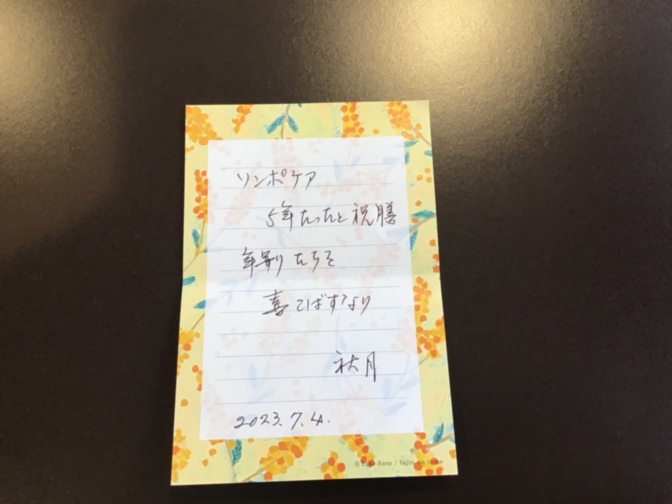 ソンポケア
5年たったと祝膳
年寄りたちを
喜こばすなり
秋月
2023.7.4.